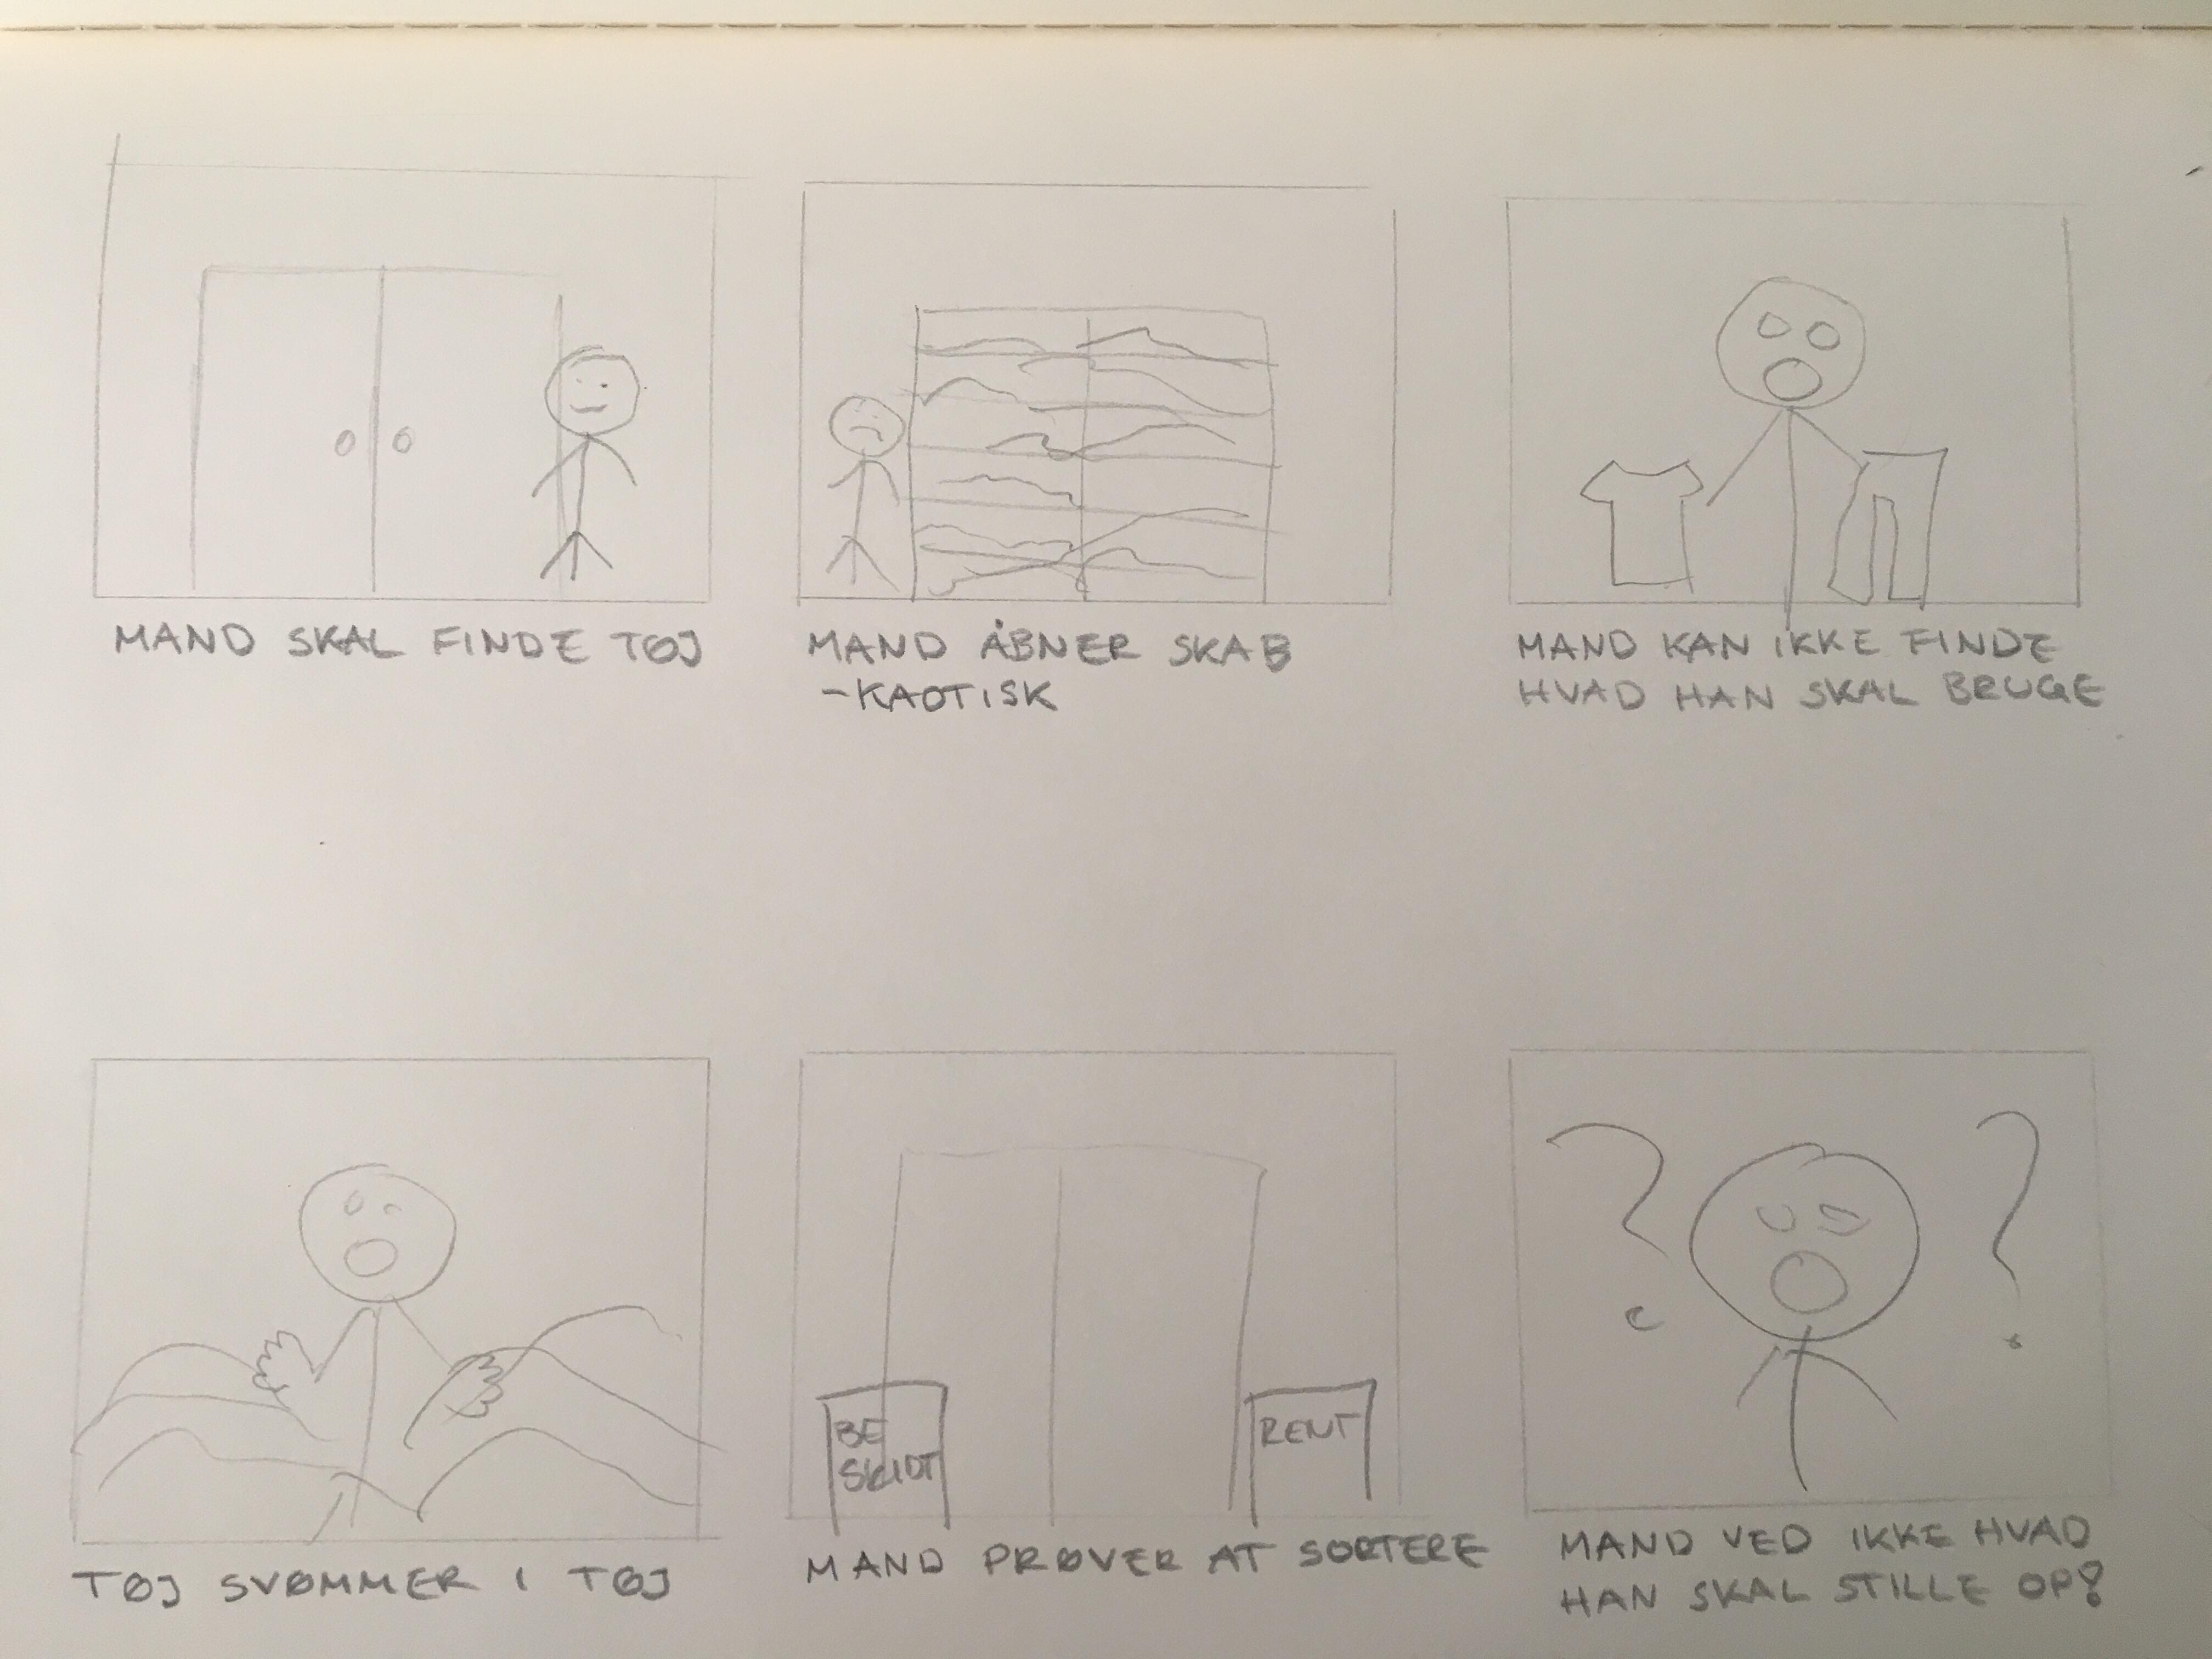 MAND SKAL FINDE TØJ
MAND ÅBNER SKAB
-KAOTISK
MAND KAN IKKE FINDE
HVAD HAN SKAL BRUGE
TØJ SVØMMER I TØJ
BE
SKIDT
RENT
MAND PRØVER AT SORTERE
? ?
MAND VED IKKE HVAD
HAN SKAL STILLE OP?